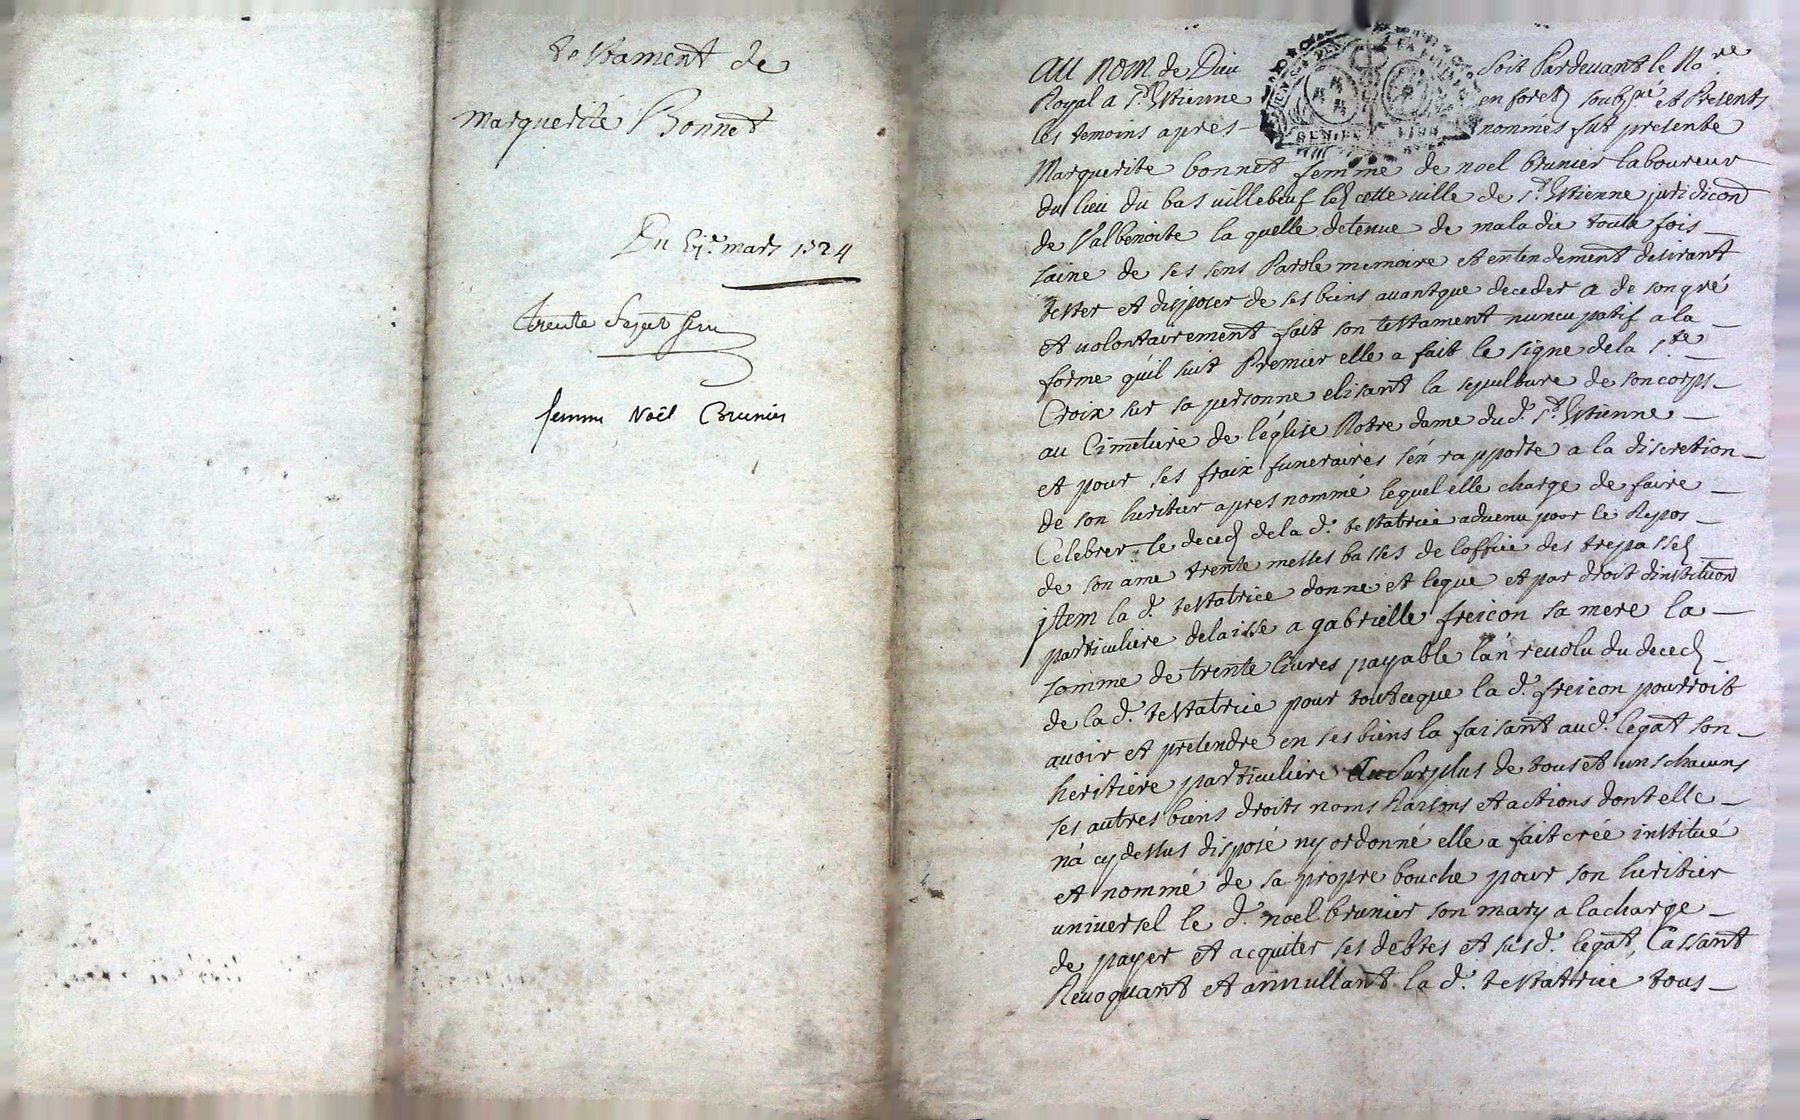 testament de
Marguerite Bonnet
Du mars 1724
trente
femme Noël Brunier
AU NOM de Dieu soit Pardevant le No.re
Royal a S.t Estienne en foretz soubz.ne et Presents
les temoins apres nommés fut presente
Marguerite bonnet femme de noel brunier laboureur
du lieu du bas villebeuf lez cette ville de S.t Estienne juridicon
de Valbenoite la quelle detenue de maladie toute fois
saine de ses sens Parole memoire et entendement desirant
tester et disposer de ses biens avant que deceder a de son gré
et volontairement fait son testament nuncupatif a la
forme quil suit Premier elle a fait le signe de la S.te
Croix sur sa personne elisant la sepulture de son corps
au Cimetiere de l'église Notre dame du d. S.t Estienne
et pour ses fraix funeraires s'én rapporte a la discretion
de son heritier apres nommé lequel elle charge de faire
Celebrer le decedz de la d. testatrice advenu pour le Repos
de son ame trente messes basses de loffice des trepassez
jtem la d. testatrice donne et legue et par droit dinstitution
particuliere delaisse a gabrielle freicon sa mere la
somme de trente livres payable l'an revolu du decedz
de la d. testatrice pour tout ce que la d. freicon pourroit
avoir et prétendre en ses biens la faisant aud. legat son
heritiere particuliere Au Surplus de tous et uns chacuns
ses autres biens droits noms Raisons et actions dont elle
n'a cy dessus disposé ny ordonné elle a fait crée institué
et nommé de sa propre bouche pour son heritier
universel le d. noel brunier son mary a la charge
de payer et acquiter ses debtes et susd. legat, Cassant
Revoquant et annullant la d. testatrice tous